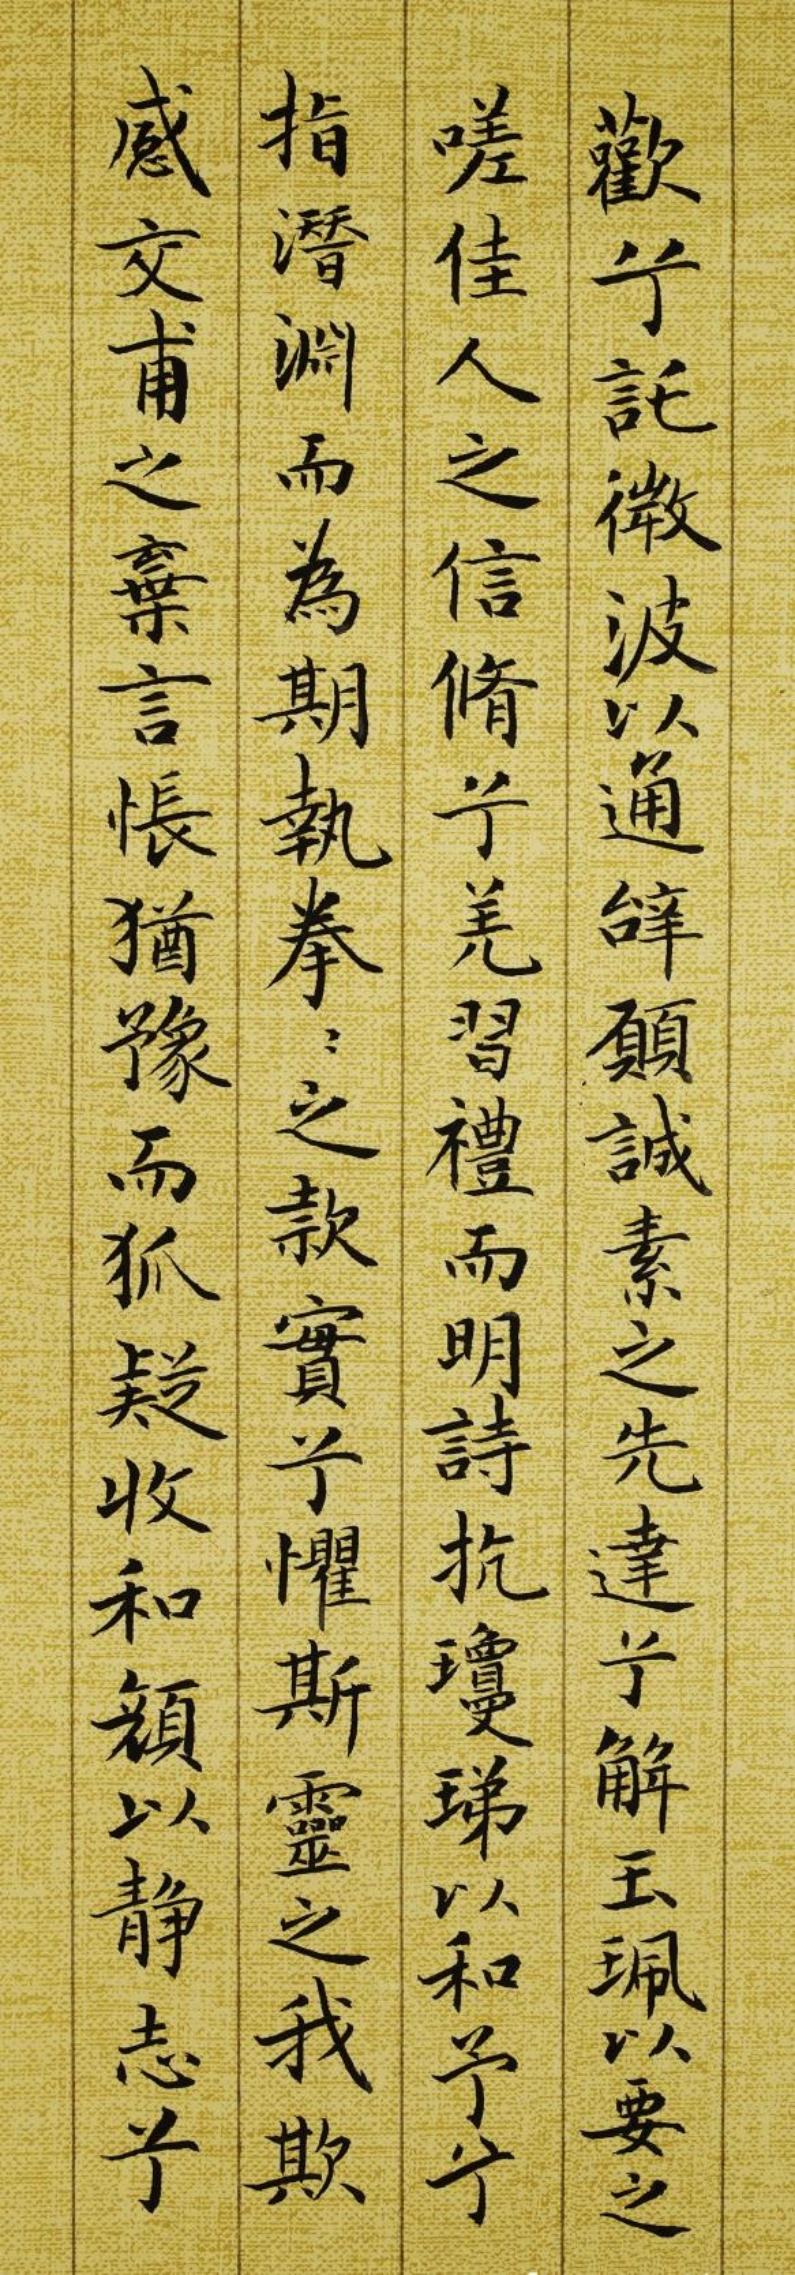 歡兮託微波以通辭願誠素之先達兮解玉珮以要之
嗟佳人之信脩兮羌習禮而明詩抗瓊珶以和予兮
指潛淵而為期執拳〻之款實兮懼斯靈之我欺
感交甫之棄言悵猶豫而狐疑收和顏以靜志兮